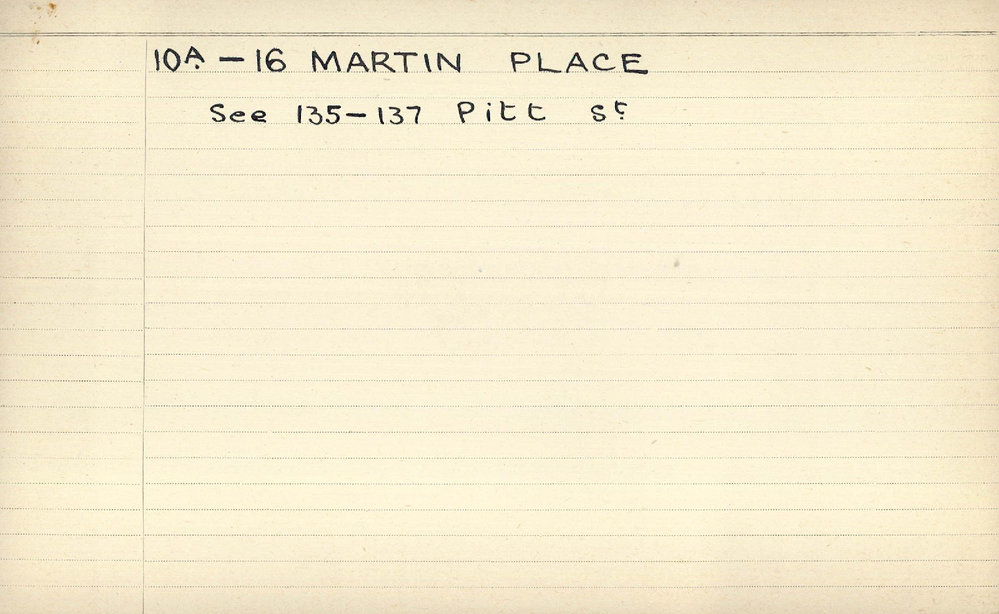 10A – 16 MARTIN PLACE
See 135 – 137 Pitt St